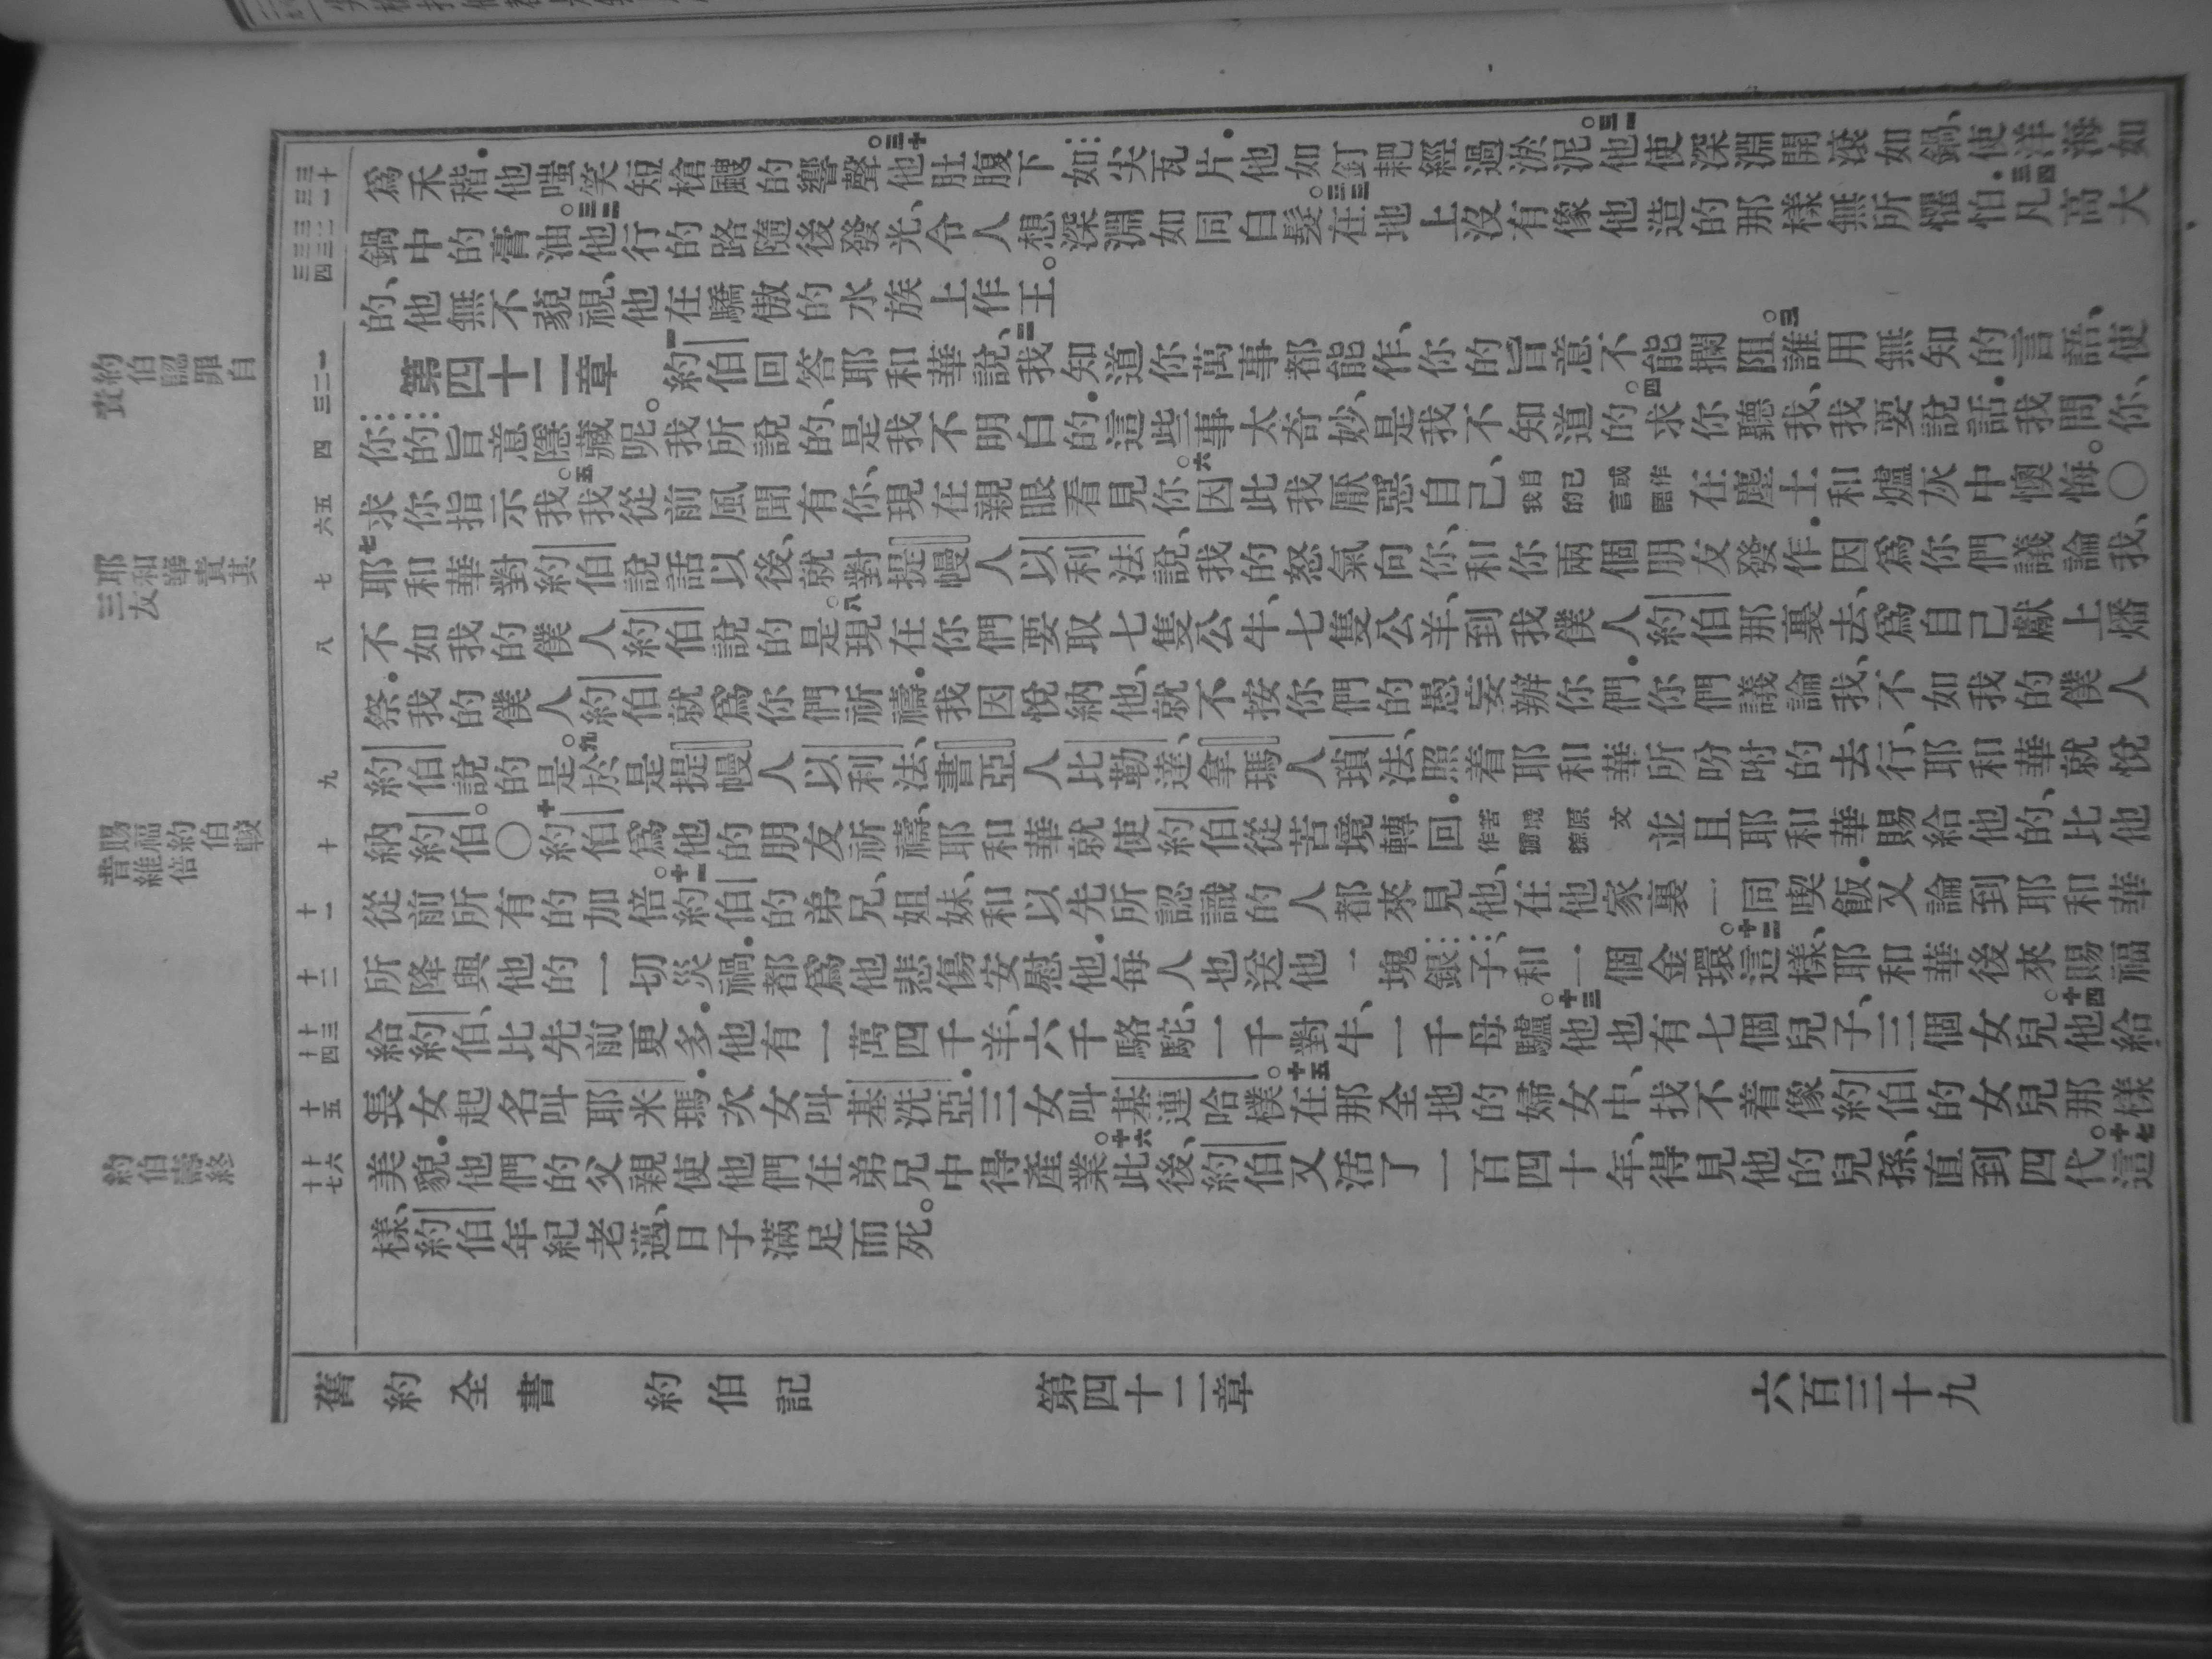 爲禾稭．他嗤笑短槍颼的響聲。三十他肚腹下如尖瓦片．他如釘耙經過淤泥。三一他使深淵開滾如鍋、使洋海如
鍋中的膏油。三二他行的路隨後發光、令人想深淵如同白髮。三三在地上沒有像他造的那樣無所懼怕．三四凡高大
的、他無不藐視、他在驕傲的水族上作王。
第四十二章　一約伯回答耶和華說、二我知道你萬事都能作、你的旨意不能攔阻。三誰用無知的言語、使
你的旨意隱藏呢。我所說的、是我不明白的．這些事太奇妙、是我不知道的。四求你聽我、我要說話．我問你、
求你指示我。五我從前風聞有你、現在親眼看見你。六因此我厭惡自己、自己或作我的言語在塵土和爐灰中懊悔。〇
七耶和華對約伯說話以後、就對提幔人以利法說、我的怒氣向你、和你兩個朋友發作．因爲你們議論我、
不如我的僕人約伯說的是。八現在你們要取七隻公牛、七隻公羊、到我僕人約伯那裏去、爲自己獻上燔
祭．我的僕人約伯就爲你們祈禱．我因悅納他、就不按你們的愚妄辦你們．你們議論我、不如我的僕人
約伯說的是。九於是提幔人以利法、書亞人比勒達、拿瑪人瑣法、照着耶和華所吩咐的去行、耶和華就悅
納約伯。〇十約伯爲他的朋友祈禱、耶和華就使約伯從苦境轉回．苦境原文作擄掠並且耶和華賜給他的、比他
從前所有的加倍。十一約伯的弟兄、姐妹、和以先所認識的人都來見他、在他家裏一同喫飯．又論到耶和華
所降與他的一切災禍．都爲他悲傷安慰他．每人也送他一塊銀子、和一個金環。十二這樣、耶和華後來賜福
給約伯、比先前更多．他有一萬四千羊、六千駱駝、一千對牛、一千母驢。十三他也有七個兒子、三個女兒。十四他給
長女起名叫耶米瑪．次女叫基洗亞．三女叫基連哈樸。十五在那全地的婦女中、找不着像約伯的女兒那樣
美貌．他們的父親使他們在弟兄中得產業。十六此後、約伯又活了一百四十年、得見他的兒孫、直到四代。十七這
樣、約伯年紀老邁、日子滿足而死。
舊約全書　約伯記　第四十二章　六百三十九
約伯認罪自責
耶和華責其三友
賜福約伯較昔維倍
約伯壽終